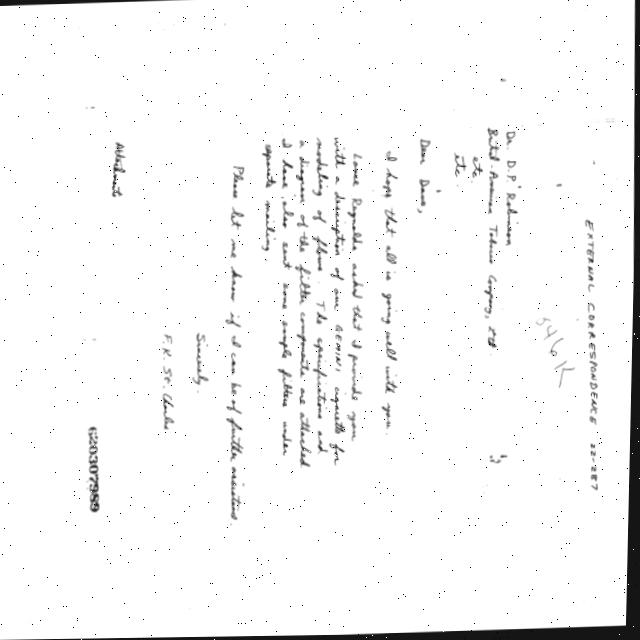 EXTERNAL CORRESPONDENCE 22-287
5461K
Dr. D.P. Robinson
British-American Tobacco Company, Ltd.
etc
etc.
Dear Dave,
I hope that all is going well with you.
Lance Reynolds asked that I provide you
with a description of our GEMINI cigarette for
modeling of flows. The specifications and
a diagram of the filter composite are attached
I have also sent some sample filters under
separate mailing
Please let me know if I can be of further assistance
Sincerely.
F.K. St. Charles
Attachments
620307989